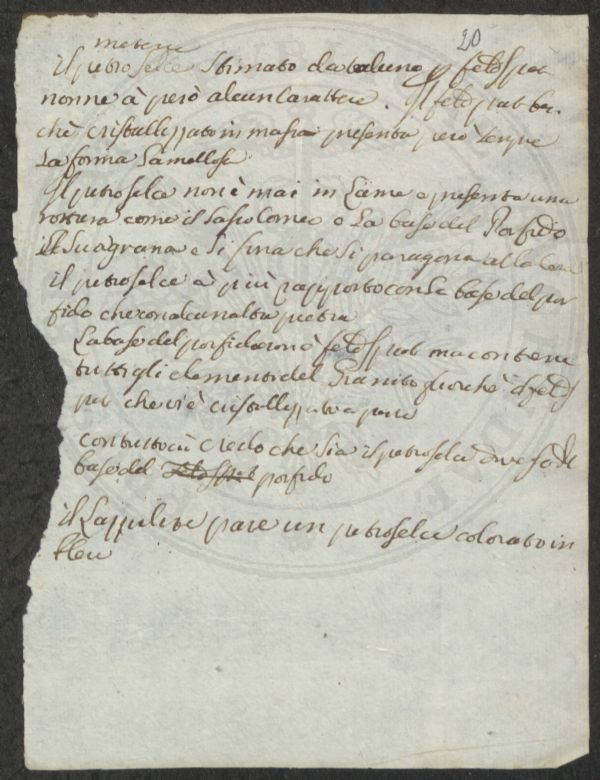 20
il petroselce stimato da taluno p feldspat
nonne à però alcun Carattere. Il feldspat ben
chè cristallizzato in massa presenta però sempre
La forma Lamellosa
Il petroselce non è mai in Lame e presenta una
rottura come il Sasso corneo o La base del Porfido
Sua grana e Si fina che Si paragona alla cera
il petroselce à più rapporto con La base del por
fido che con alcun altra pietra
La base del porfido non è feldspat ma contiene
tutti gli elementi del Granito fuorchè il felds
pat che vi è cristallizzato a parte
con tutto ciò credo che sia il petroselce
base del porfido
il Lazzulite pare un petroselce colorato in
bleu